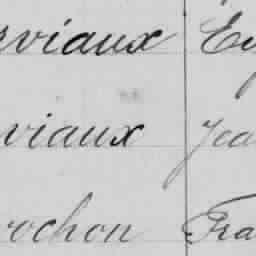 rviaux Eu
viaux Jea
rochon Fra